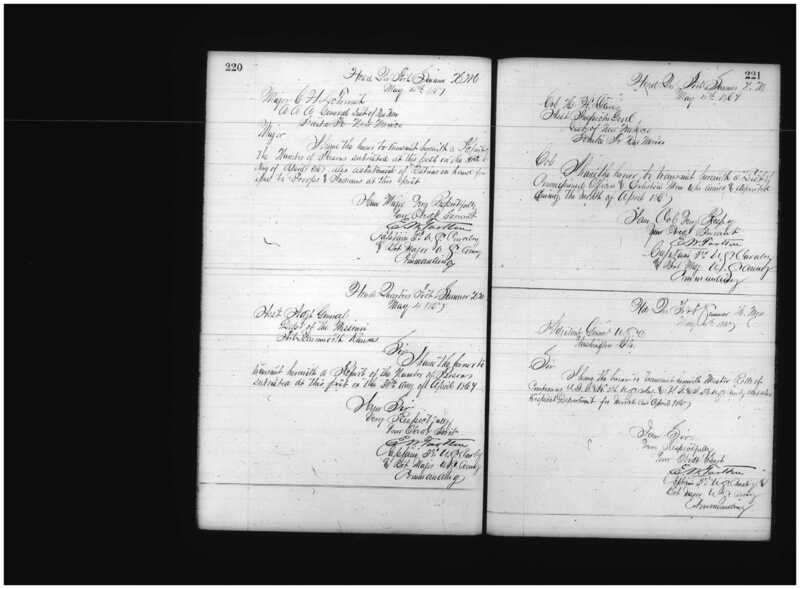 220
Head Qrs Fort Sumner N.M.
May 4th 1867
Major C. H.
A A A General Dist of New Mex
Santa Fe New Mexico
Major
I have the honor to transmit herewith a Report
The Number of Persons subsisted at this post on the 30th
day of April 1867 also a statement of Rations on hand for
issue to Troops & Indians at this post
I am Major Very Respectfully
Your Obedt Servant
Captain 3d U S Cavalry
& Bvt Major U S Army
Commanding
Head Quarters Fort Sumner N.M.
May 4 1867
Asst Adjt General
Dept of the Missouri
Fort Leavenworth Kansas
Sir I have the honor to
transmit herewith a Report of the Number of Persons
subsisted at this post on the 30th day of April 1867
I am Sir
Very Respectfully
Your Obedt Servt
Captain 3d U S Cavalry
& Bvt Major U S Army
Commanding
221
Head Qrs Fort Sumner N.M.
May 4th 1867
Col
Asst Inspector Genl
Dist of New Mexico
Santa Fe New Mexico
Col
I have the honor to transmit herewith a List of
Commissioned Officers & Enlisted Men who arrived & departed
during the month of April 1867
I am Col Very Respy
your Obedt Servant
Captain 3d U S Cavalry
& Bvt Maj U S Army
Commanding
Hd Qrs Fort Sumner N. Mex
May 1867
Adjutant General U S A
Washington
Sir
I have the honor to transmit herewith Muster Rolls of
Companies
Hospital Department for April 1867
I am Sir
Very Respectfully
Your Obedt Servt
Captain 3d U S Cavalry &
Bvt Major U S Army
Commanding